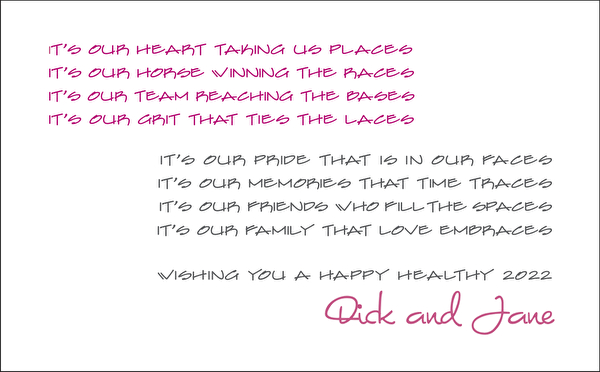 IT'S OUR HEART TAKING US PLACES
IT'S OUR HORSE WINNING THE RACES
IT'S OUR TEAM REACHING THE BASES
IT'S OUR GRIT THAT TIES THE LACES
IT'S OUR PRIDE THAT IS IN OUR FACES
IT'S OUR MEMORIES THAT TIME TRACES
IT'S OUR FRIENDS WHO FILL THE SPACES
IT'S OUR FAMILY THAT LOVE EMBRACES
WISHING YOU A HAPPY HEALTHY 2022
Dick and Jane